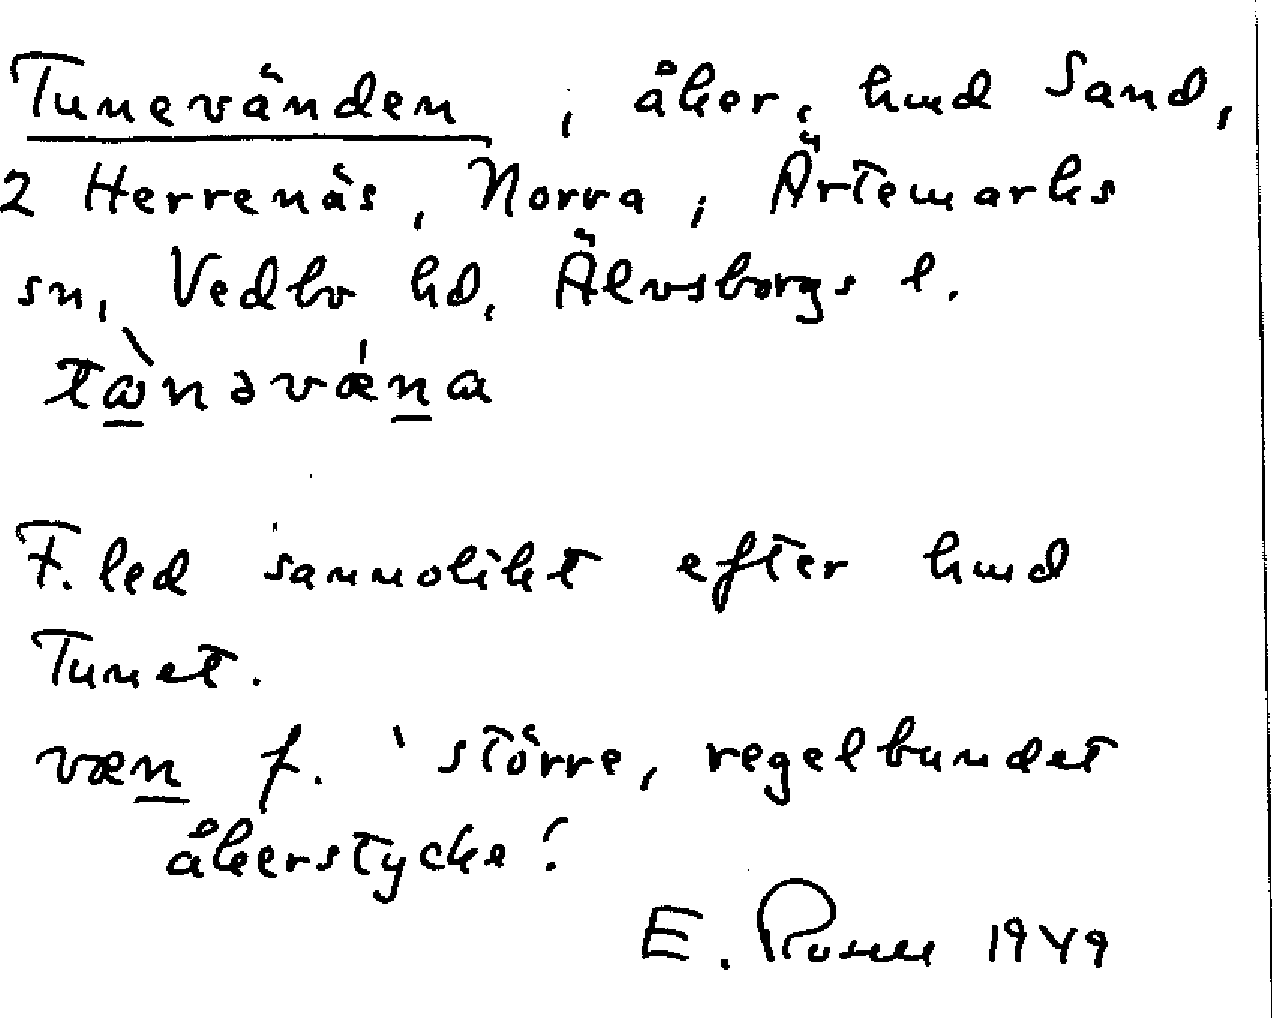 Tunevänden, åker, hmd Sand,
2 Herrenäs, Norra, Ärtemarks
sn, Vedbo hd, Älvsborgs l.
tɷ̀nəvǽna
F. led sannolikt efter hmd
Tunet.
væn f. 'större, regelbundet
åkerstycke'.
E. Rosell 1949